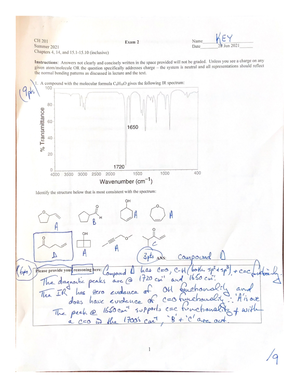 CH 203
Summer 2023
Chapters 4, 14, and 15.1-15.18 (inclusive)
Exam 2
Name KEY
Date Jun 2023
Instructions: Answers not clearly and concisely written in the space provided will not be graded. Unless you see a charge on any given atom/molecule OR the question specifically addresses charge – the system is neutral and all representations should reflect the normal bonding patterns as discussed in lecture and the text.
(9pts)
1. A compound with the molecular formula gives the following IR spectrum:
% Transmittance
100
80
60
40
20
0
1650
1720
Wavenumber (cm⁻¹)
Identify the structure below that is most consistent with the spectrum.
A
B
C
D
(3pts) ans compound D
(6pts) Please provide your reasoning here: Compound D has C=O, C-H (both sp² & sp³) + C=C functionality
The diagnostic peaks are @ 1720 cm⁻¹ and 1650 cm⁻¹.
The IR has zero evidence of OH functionality and
does have evidence of C=O functionality.
The peak @ 1650 cm⁻¹ supports C=C functionality & with
a C=O in the 1700's cm⁻¹, "B" + "C" are out.
1
/9